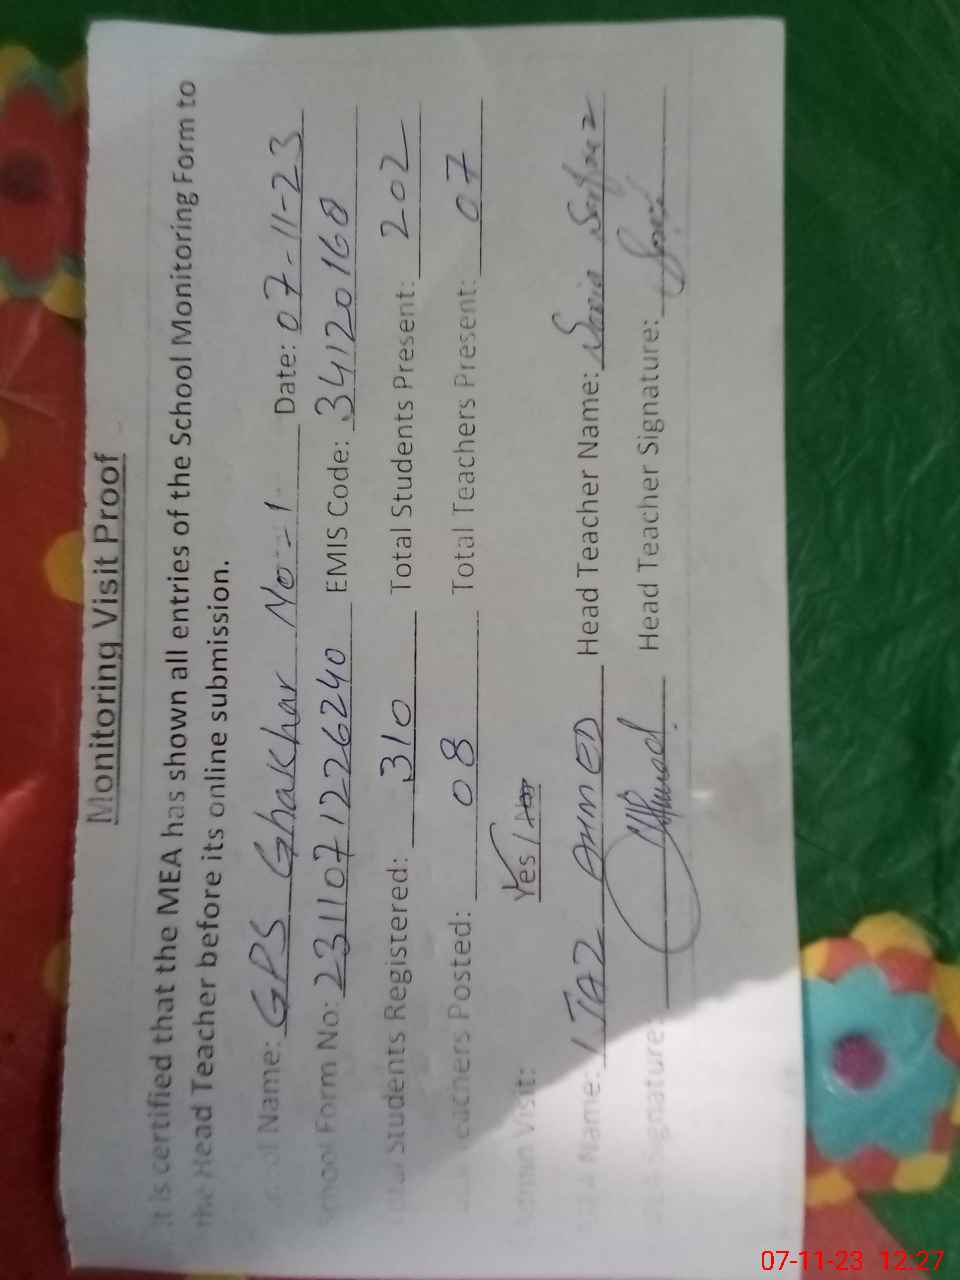 Monitoring Visit Proof
It is certified that the MEA has shown all entries of the School Monitoring Form to
the Head Teacher before its online submission.
Name: GPS Ghakhar No-1 Date: 07-11-23
School Form No: 2311071226240 EMIS Code: 34120160
Students Registered: 310 Total Students Present: 202
Teachers Posted: 08 Total Teachers Present: 07
Admin Visit: Yes / No
Name: IJAZ AHMED Head Teacher Name:
Signature: Head Teacher Signature:
07-11-23 12:27